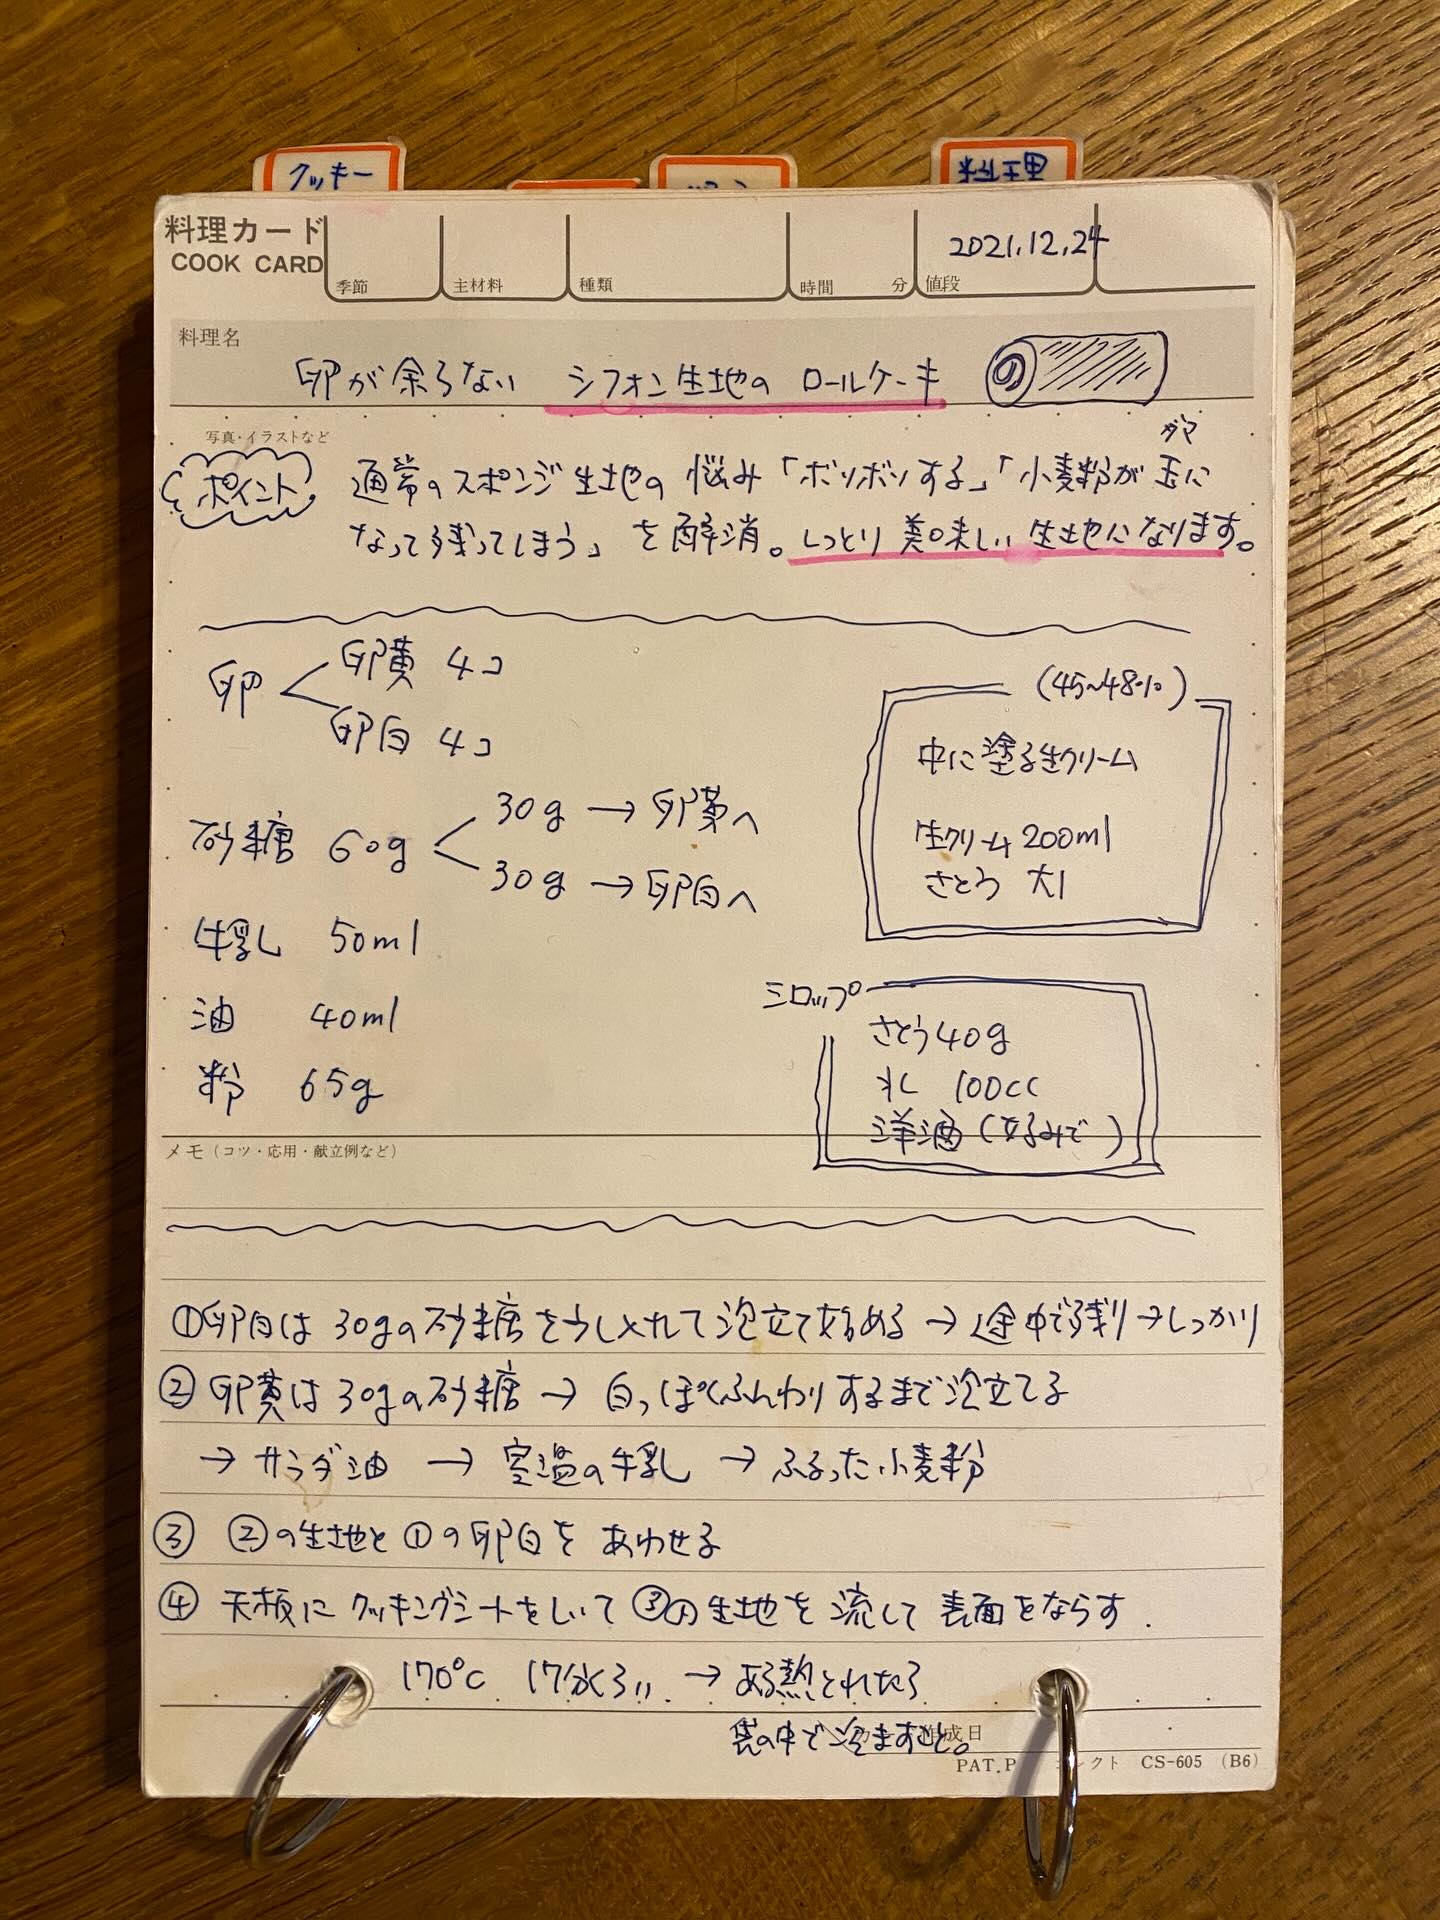 クッキー
料理
料理カード
COOK CARD
季節 主材料 種類 時間 分 値段
2021.12.24
料理名
卵が余らない シフォン生地の ロールケーキ
写真・イラストなど
ポイント
ダマ
通常のスポンジ生地の悩み「ボソボソする」「小麦粉が玉に
なって残ってしまう」を解消。しっとり美味しい生地になります。
卵 卵黄 4コ
卵白 4コ
砂糖 60g 30g → 卵黄へ
30g → 卵白へ
牛乳 50ml
油 40ml
粉 65g
(45~48%)
中に塗る生クリーム
生クリーム 200ml
さとう 大1
シロップ
さとう 40g
水 100cc
洋酒(好みで)
メモ(コツ・応用・献立例など)
①卵白は30gの砂糖を少し入れて泡立て始める→途中で残り→しっかり
②卵黄は30gの砂糖→白っぽくふんわりするまで泡立てる
→サラダ油 → 室温の牛乳 → ふるった小麦粉
③ ②の生地と①の卵白をあわせる
④ 天板にクッキングシートをしいて③の生地を流して表面をならす.
170℃ 17分くらい → あら熱とれたら
袋の中で冷ますこと。
作成日
PAT.P レクト CS-605 (B6)